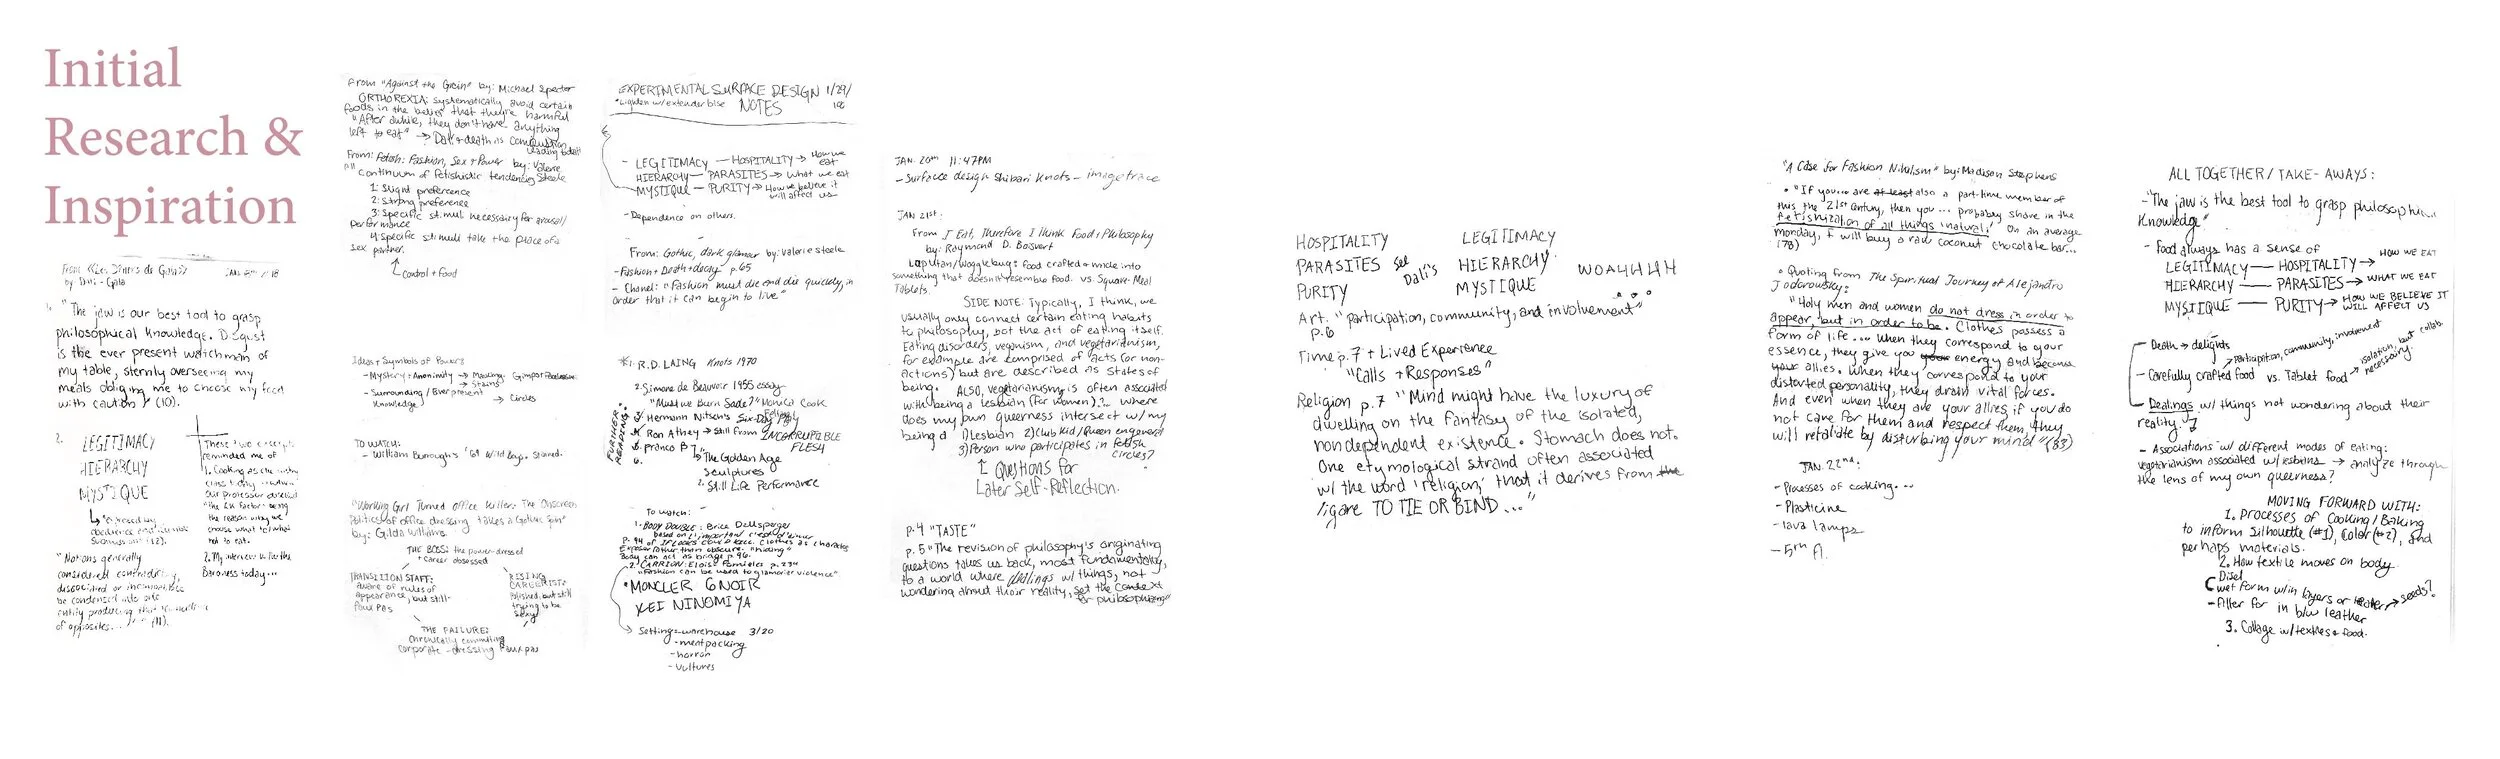 Initial
Research &
Inspiration
From <<Les Diners de Gala>>
by: Dali - Gala
1. "The jaw is our best tool to grasp
philosophical knowledge. Disgust
is the ever present watchman of
my table, sternly overseeing my
meals obliging me to choose my food
with caution" (10).
2.
LEGITIMACY
HIERARCHY
MYSTIQUE
obedience and
submission (12).
"Notions generally
considered contradictory,
dissociated or
be condensed into one
entity producing that
of opposites..." (11).
These two excerpts
reminded me of
1. Cooking as
class today
our professor
"the Ick Factor" being
the reason why we
choose what to/what
not to eat.
2. My interest in
Baroness today...
From "Against the Grain" by: Michael Specter
ORTHOREXIA: systematically avoid certain
foods in the belief that they're harmful
"After awhile, they don't have anything
left to eat" → Dali + death is
From: Fetish: Fashion, Sex + Power by: Valerie
Steele
Continuum of Fetishistic tendencies
1: Slight preference
2: Strong preference
3: Specific stimuli necessary for arousal/
performance
4: Specific stimuli take the place of a
sex partner.
control + food
Ideas + Symbols of Power:
- Mystery + Anonymity → Masking
→ Stains
- Surrounding/Ever present
Knowledge → Circles
TO WATCH:
- William Burrough's '69 Wild Boys.
"Working Girl Turned Office Killer: The Onscreen
Politics of office dressing takes a Gothic Spin"
by: Gilda Williams.
THE BOSS: the power-dressed
+ career obsessed
TRANSITION STAFF:
aware of rules of
appearance, but still
faux pas
RISING
CAREERIST:
Polished, but still
trying to be
sexy
THE FAILURE:
Chronically committing
corporate-dressing faux pas
EXPERIMENTAL SURFACE DESIGN 1/29/
NOTES
LEGITIMACY — HOSPITALITY → How we eat
HIERARCHY — PARASITES → What we eat
MYSTIQUE — PURITY → How we believe it
will affect us
- Dependence on others.
From: Gothic, dark glamour by: Valerie Steele
- Fashion + Death + decay p. 65
- Chanel: "Fashion must die and die quickly, in
order that it can begin to live"
FURTHER
READING:
1. R.D. LAING Knots 1970
2. Simone de Beauvoir 1955 essay
"Must We Burn Sade?" Monica Cook
3. Hermann Nitsch's Six-Day Play
4. Ron Athey → Still from INCORRUPTIBLE
FLESH
5. Franco B
6.
The Golden Age
Sculptures
2. Still Life Performance
To watch:
1. BODY DOUBLE: Brice Dellsperger
p. 94 of If Looks Could Kill. Clothes as characters
Expose rather than obscure. "hiding"
Body can act as bridge p. 96.
"Fashion can be used to glamorize violence"
MONCLER 6 NOIR
KEI NINOMIYA
Setting: - warehouse 3/20
- meatpacking
- horror
- vultures
JAN. 20th 11:47PM
- Surface design Shibari Knots - image trace
JAN 21st:
From I Eat, Therefore I Think Food + Philosophy
by: Raymond D. Boisvert
Laputan/wogglebug: food crafted + made into
something that doesn't resemble food. vs. Square-Meal
Tablets.
SIDE NOTE: Typically, I think, we
usually only connect certain eating habits
to philosophy, not the act of eating itself.
Eating disorders, veganism, and vegetarianism,
for example are comprised of acts (or non-
actions) but are described as states of
being. ALSO, vegetarianism is often associated
with being a lesbian (for women)?... Where
does my own queerness intersect w/ my
being a 1) Lesbian 2) Club Kid/Queen en general
3) Person who participates in fetish
circles?
↑ Questions for
Later Self-Reflection.
p. 4 "TASTE"
p. 5 "The revision of philosophy's originating
questions takes us back, most fundamentally,
to a world where dealings w/ things, not
wondering about their reality, set the context
for philosophizing"
HOSPITALITY
PARASITES
PURITY
see
Dali's
LEGITIMACY
HIERARCHY
MYSTIQUE
WOAHHHH
...
Art. "participation, community, and involvement"
p. 6
Time p. 7 + Lived Experience
"Calls + Responses"
Religion p. 7 "Mind might have the luxury of
dwelling on the fantasy of the isolated,
nondependent existence. Stomach does not.
One etymological strand often associated
w/ the word 'religion,' that it derives from the
ligare TO TIE OR BIND..."
"A Case for Fashion Nihilism" by: Madison Stephens
• "If you... are at least also a part-time member of
this the 21st Century, then you... probably share in the
fetishization of all things 'natural.' On an average
monday, I will buy a raw coconut chocolate bar...
(78)
• Quoting from The Spiritual Journey of Alejandro
Jodorowsky:
"Holy men and women do not dress in order to
appear, but in order to be. Clothes possess a
form of life... When they correspond to your
essence, they give you your energy and become
your allies. When they correspond to your
distorted personality, they drain vital forces.
And even when they are your allies, if you do
not care for them and respect them, they
will retaliate by disturbing your mind" (83)
JAN. 22nd:
- Processes of cooking...
- Plasticine
- lava lamps
- 5th
ALL TOGETHER/TAKE-AWAYS:
- "The jaw is the best tool to grasp
Knowledge"
- Food always has a sense of
LEGITIMACY — HOSPITALITY → HOW WE EAT
HIERARCHY — PARASITES → WHAT WE EAT
MYSTIQUE — PURITY → HOW WE BELIEVE IT
WILL AFFECT US
- Death → delights
→ participation, community, involvement
- Carefully crafted food vs. Tablet food → isolation, but collab.
necessary.
- Dealings w/ things not wondering about their
reality
- Associations w/ different modes of eating:
vegetarianism associated w/ lesbians → analyze through
the lens of my own queerness?
MOVING FORWARD WITH:
1. Processes of Cooking/Baking
to inform Silhouette (#1), Color (#2), and
perhaps materials.
2. How textile moves on body
wet form w/in layers or leather → seeds?
- Filler for in b/w leather
3. Collage w/ textiles + food.